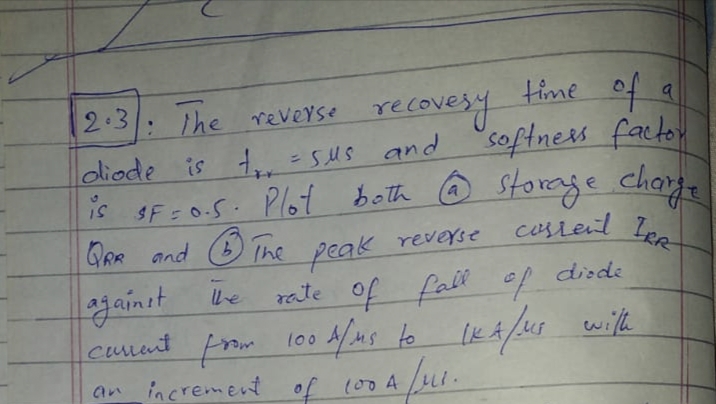 2.3 : The reverse recovery time of a
diode is trr = 5μs and softness factor
is SF = 0.5. Plot both (a) storage charge
QRR and (b) The peak reverse current IRR
against the rate of fall of diode
current from 100 A/μs to 1KA/μs with
an increment of 100 A/μs.